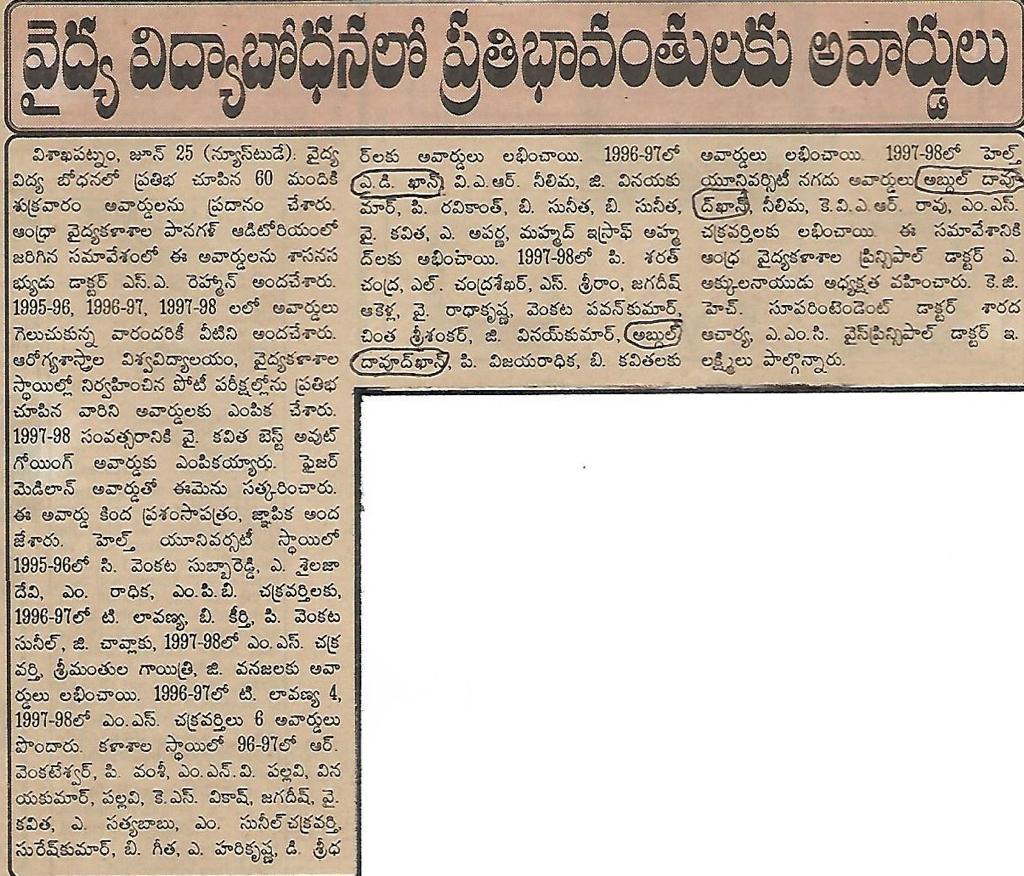 వైద్య విద్యాబోధనలో ప్రతిభావంతులకు అవార్డులు
విశాఖపట్నం, జూన్ 25 (న్యూస్‌టుడే): వైద్య
విద్య బోధనలో ప్రతిభ చూపిన 60 మందికి
శుక్రవారం అవార్డులను ప్రదానం చేశారు.
ఆంధ్రా వైద్యకళాశాల పానగళ్ ఆడిటోరియంలో
జరిగిన సమావేశంలో ఈ అవార్డులను శాసనస
భ్యుడు డాక్టర్ ఎస్.ఎ. రెహ్మాన్ అందచేశారు.
1995-96, 1996-97, 1997-98 లలో అవార్డులు
గెలుచుకున్న వారందరికీ వీటిని అందచేశారు.
ఆరోగ్యశాస్త్రాల విశ్వవిద్యాలయం, వైద్యకళాశాల
స్థాయిల్లో నిర్వహించిన పోటీ పరీక్షల్లోను ప్రతిభ
చూపిన వారిని అవార్డులకు ఎంపిక చేశారు.
1997-98 సంవత్సరానికి వై. కవిత బెస్ట్ అవుట్
గోయింగ్ అవార్డుకు ఎంపికయ్యారు. ఫైజర్
మెడిలాన్ అవార్డుతో ఈమెను సత్కరించారు.
ఈ అవార్డు కింద ప్రశంసాపత్రం, జ్ఞాపిక అంద
జేశారు. హెల్త్ యూనివర్సటీ స్థాయిలో
1995-96లో సి. వెంకట సుబ్బారెడ్డి, ఎ. శైలజా
దేవి, ఎం. రాధిక, ఎం.పి.బి. చక్రవర్తిలకు,
1996-97లో టి. లావణ్య, బి. కీర్తి, పి. వెంకట
సునీల్, జి. చావ్లాకు, 1997-98లో ఎం.ఎస్. చక్ర
వర్తి, శ్రీమంతుల గాయిత్రి, జి. వనజలకు అవా
ర్డులు లభించాయి. 1996-97లో టి. లావణ్య 4,
1997-98లో ఎం.ఎస్. చక్రవర్తిలు 6 అవార్డులు
పొందారు. కళాశాల స్థాయిలో 96-97లో ఆర్.
వెంకటేశ్వర్, పి. వంశీ, ఎం.ఎన్.వి. పల్లవి, విన
యకుమార్, పల్లవి, కె.ఎస్. వికాష్, జగదీష్, వై.
కవిత, ఎ. సత్యబాబు, ఎం. సునీల్‌చక్రవర్తి,
సురేష్‌కుమార్, బి. గీత, ఎ. హరికృష్ణ, డి. శ్రీధ
ర్‌లకు అవార్డులు లభించాయి. 1996-97లో
ఎ.డి. ఖాన్, వి.ఎ.ఆర్. నీలిమ, జి. వినయకు
మార్, పి. రవికాంత్, బి. సునీత, బి. సునీత,
వై. కవిత, ఎ. అపర్ణ, మహ్మద్ ఇస్రాఫ్ అహ్మ
ద్‌లకు అభించాయి. 1997-98లో పి. శరత్
చంద్ర, ఎల్. చంద్రశేఖర్, ఎస్. శ్రీరాం, జగదీష్
ఆకెళ్ల, వై. రాధాకృష్ణ, వెంకట పవన్‌కుమార్,
చింత శ్రీశంకర్, జి. వినయ్‌కుమార్, అబ్దుల్
దావూద్‌ఖాన్, పి. విజయరాధిక, బి. కవితలకు
అవార్డులు లభించాయి. 1997-98లో హెల్త్
యూనివర్సిటీ నగదు అవార్డులు అబ్దుల్ దావూ
ద్‌ఖాన్, నీలిమ, కె.వి.ఎ.ఆర్. రావు, ఎం.ఎస్.
చక్రవర్తిలకు లభించాయి. ఈ సమావేశానికి
ఆంధ్ర వైద్యకళాశాల ప్రిన్సిపాల్ డాక్టర్ ఎ.
అక్కులనాయుడు అధ్యక్షత వహించారు. కె.జి.
హెచ్. సూపరింటెండెంట్ డాక్టర్ శారద
ఆచార్య, ఎ.ఎం.సి. వైస్‌ప్రిన్సిపాల్ డాక్టర్ ఇ.
లక్ష్మిలు పాల్గొన్నారు.